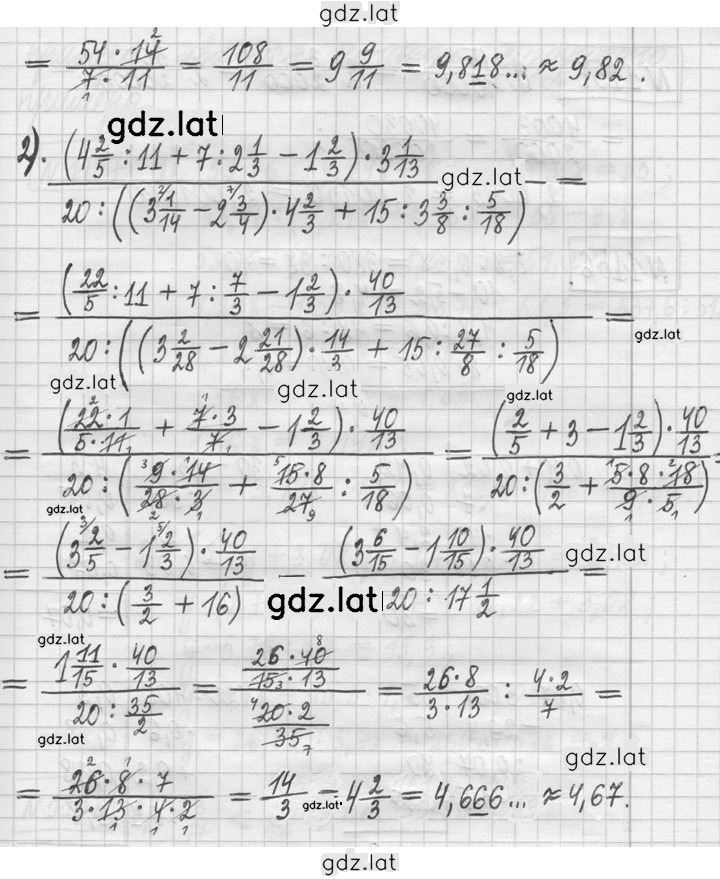 gdz.lat
= (54 · 14)/(7 · 11) = 108/11 = 9 9/11 = 9,818... ≈ 9,82.
gdz.lat
2). ((4 2/5 : 11 + 7 : 2 1/3 − 1 2/3) · 3 1/13)/(20 : ((3 1/14 − 2 3/4) · 4 2/3 + 15 : 3 3/8 : 5/18)) =
gdz.lat
= ((22/5 : 11 + 7 : 7/3 − 1 2/3) · 40/13)/(20 : ((3 2/28 − 2 21/28) · 14/3 + 15 : 27/8 : 5/18)) =
gdz.lat
gdz.lat
gdz.lat
gdz.lat
= (((22 · 1)/(5 · 11) + (7 · 3)/7 − 1 2/3) · 40/13)/(20 : ((9 · 14)/(28 · 3) + (15 · 8)/27 : 5/18)) = ((2/5 + 3 − 1 2/3) · 40/13)/(20 : (3/2 + (5 · 8 · 18)/(9 · 5))) =
gdz.lat
= ((3 2/5 − 1 2/3) · 40/13)/(20 : (3/2 + 16)) = ((3 6/15 − 1 10/15) · 40/13)/(20 : 17 1/2) =
gdz.lat
gdz.lat
gdz.lat
= (1 11/15 · 40/13)/(20 : 35/2) = ((26 · 40)/(15 · 13))/((20 · 2)/35) = (26 · 8)/(3 · 13) : (4 · 2)/7 =
gdz.lat
gdz.lat
= (26 · 8 · 7)/(3 · 13 · 4 · 2) = 14/3 = 4 2/3 = 4,666... ≈ 4,67.
gdz.lat
gdz.lat